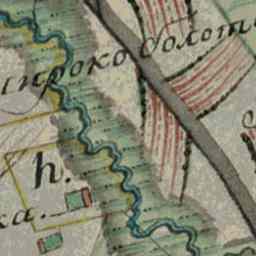 широко болот
h.
ка.